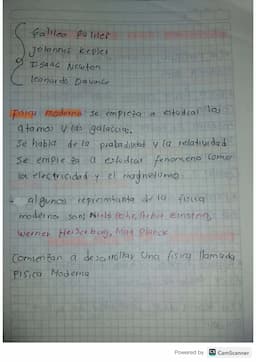 Galileo Galilei
Johannes Kepler
Isaac Newton
Leonardo Davince
Fisica moderna se empieza a estudiar los
atomos y las galacias.
Se habla de la probabilidad y la relatividad
Se empieza a estudiar fenomeno como
la electricidad y el magnetismo.
- algunos representante de la fisica
moderna son: Niels Bohr, Albert Einstein,
Werner Heisenberg, Max Planck
Comienzan a desarrollar una fisica llamada
Fisica Moderna
Powered by CS CamScanner